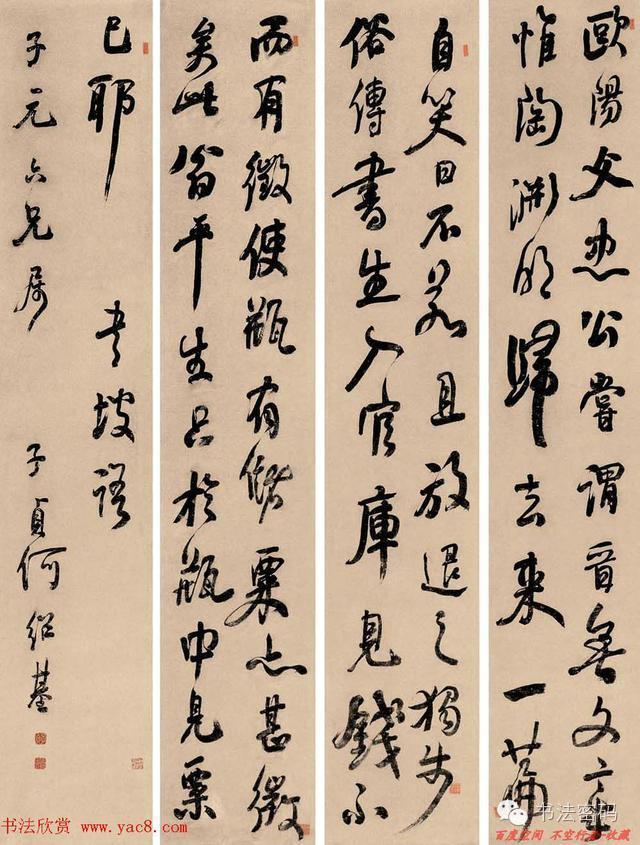 歐陽文忠公嘗謂晉無文章
惟陶淵明歸去來一篇
自笑曰不若且放退之獨步
俗傳書生入官庫見錢不
而有徵使瓶有儲粟亦甚微
矣此翁平生只於瓶中見粟
已耶 書坡語
子元六兄屬 子貞何紹基
书法欣赏 www.yac8.com
书法密码
百度空间 不空行者-收藏